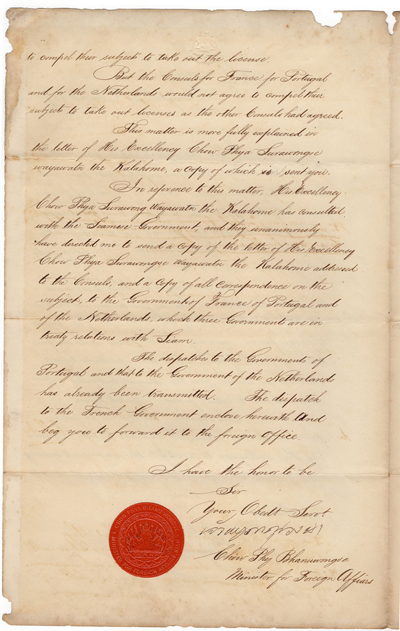 to compel their subject to take out the license
But the Consuls for France for Portugal
and for the Netherlands would not agree to compel their
subjects to take out licenses as the other Consuls had agreed.
This matter is more fully explained in
the letter of His Excellency Chow Phya Surawongse
wayawate the Kalahome, a copy of which is sent you.
In reference to this matter, His Excellency
Chow Phya Surawong Wayawate the Kalahome has consulted
with the Siamese Government, and they unanimously
have directed me to send a copy of the letter of His Excellency
Chow Phya Surawongse Wayawate the Kalahome addressed
to the Consuls, and a copy of all correspondence on the
subject, to the Governments of France of Portugal and
of the Netherlands, which three Government are in
treaty relations with Siam.
The despatches to the Governments of
Portugal and that to the Government of the Netherland
has already been transmitted. The despatch
to the French Government enclose herewith and
beg you to forward it to the foreign Office
I have the honor to be
Ser
Your Obedt Servt
Chow Phy Bhanuwongse
Minister for Foreign Affairs